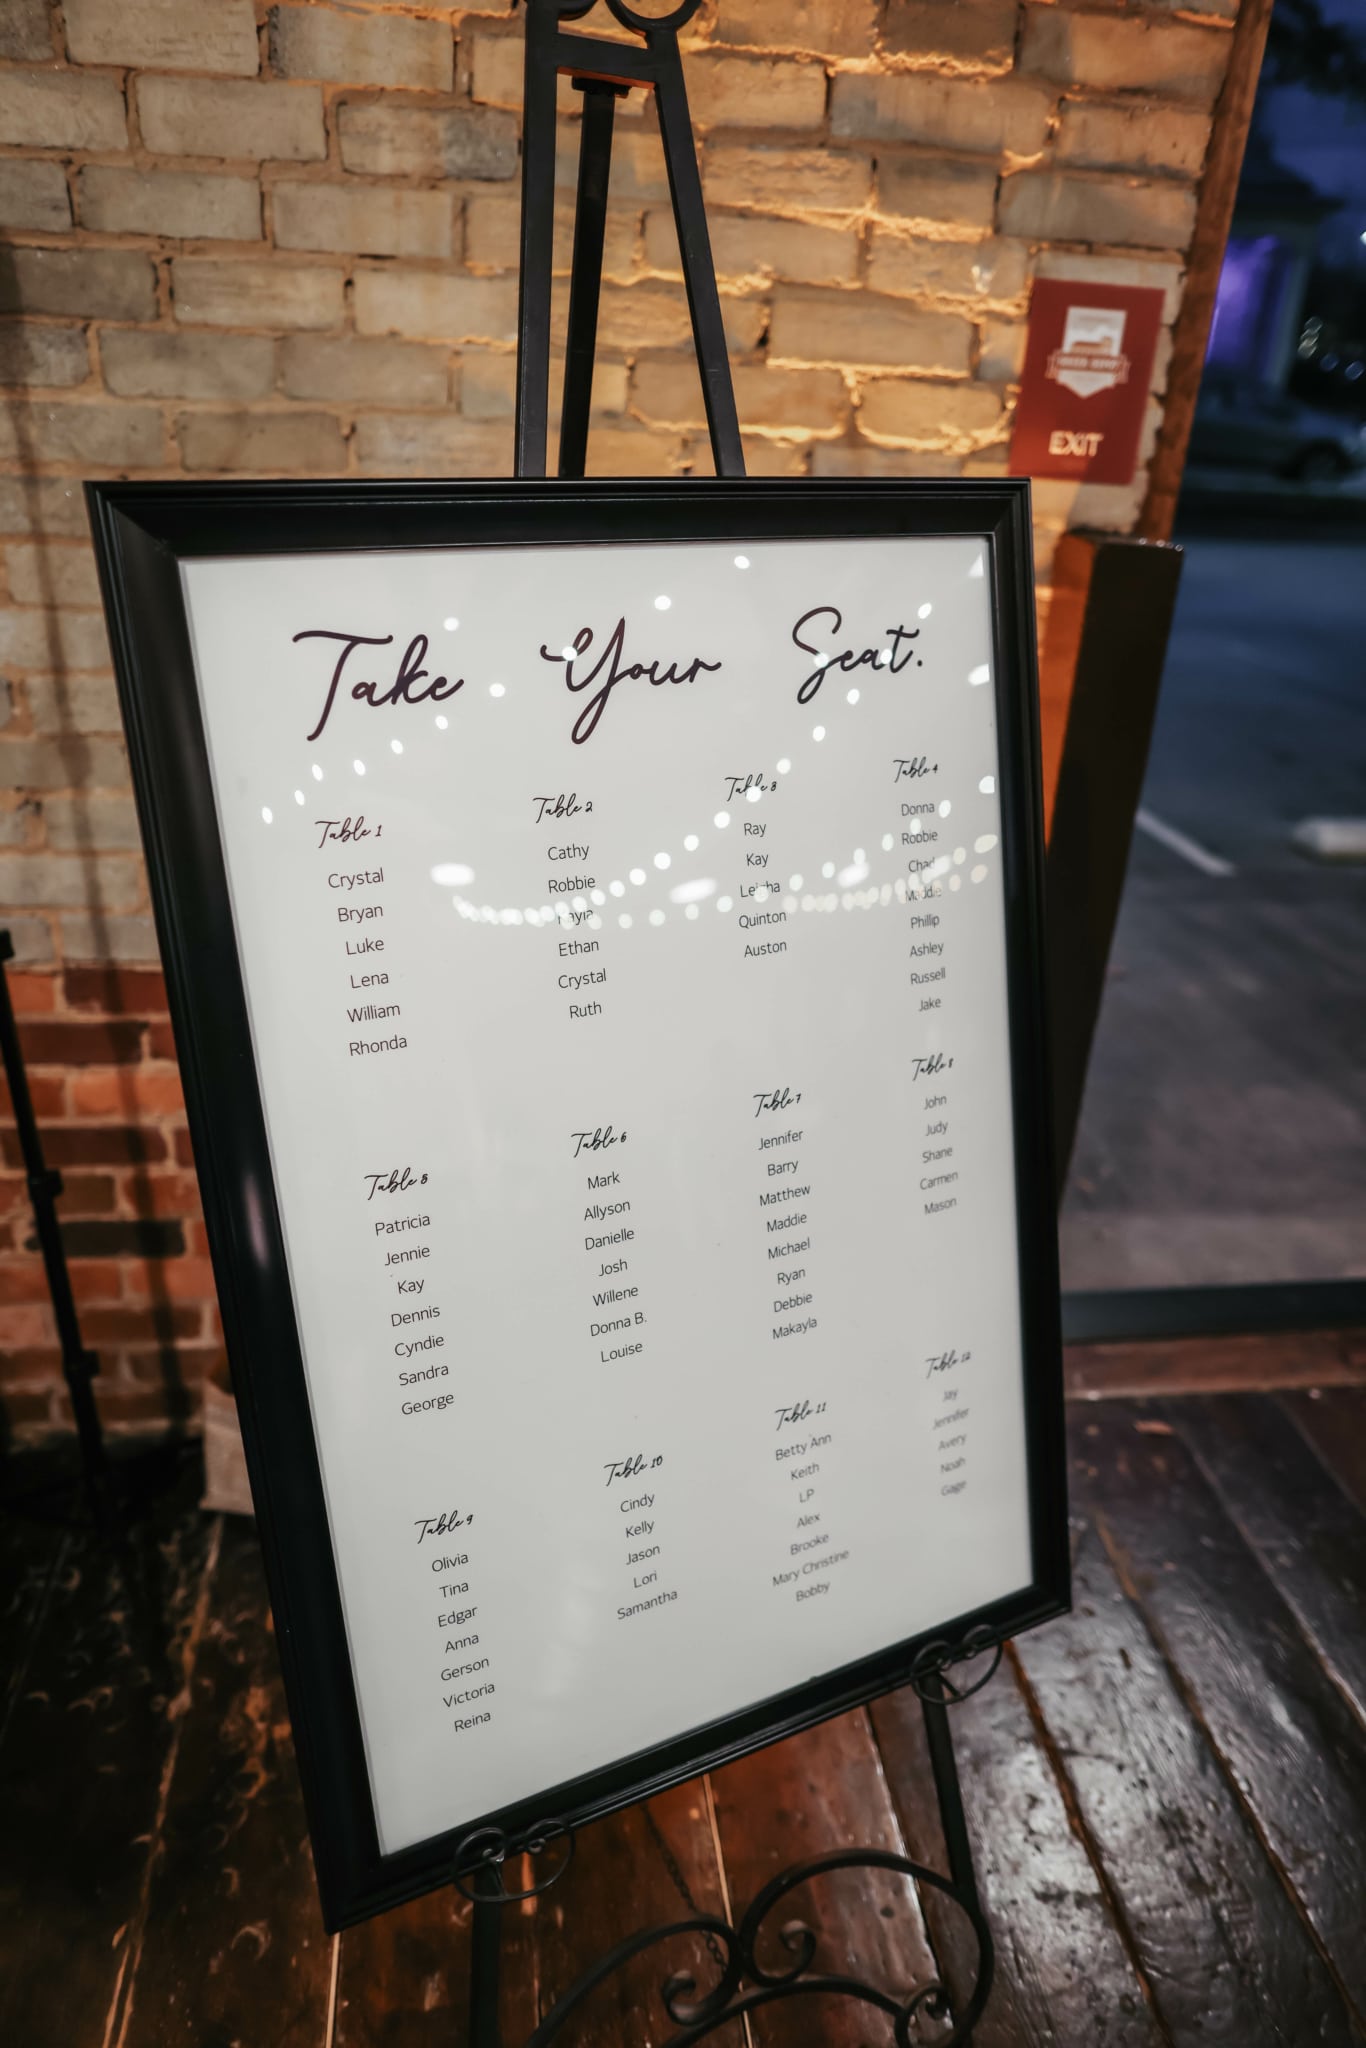 EXIT
Take Your Seat.
Table 1
Crystal
Bryan
Luke
Lena
William
Rhonda
Table 2
Cathy
Robbie
Kayla
Ethan
Crystal
Ruth
Table 3
Ray
Kay
Leigha
Quinton
Auston
Table 4
Donna
Robbie
Chad
Maddie
Phillip
Ashley
Russell
Jake
Table 5
Patricia
Jennie
Kay
Dennis
Cyndie
Sandra
George
Table 6
Mark
Allyson
Danielle
Josh
Willene
Donna B.
Louise
Table 7
Jennifer
Barry
Matthew
Maddie
Michael
Ryan
Debbie
Makayla
Table 8
John
Judy
Shane
Carmen
Mason
Table 9
Olivia
Tina
Edgar
Anna
Gerson
Victoria
Reina
Table 10
Cindy
Kelly
Jason
Lori
Samantha
Table 11
Betty Ann
Keith
LP
Alex
Brooke
Mary Christine
Bobby
Table 12
Jay
Jennifer
Avery
Noah
Gage